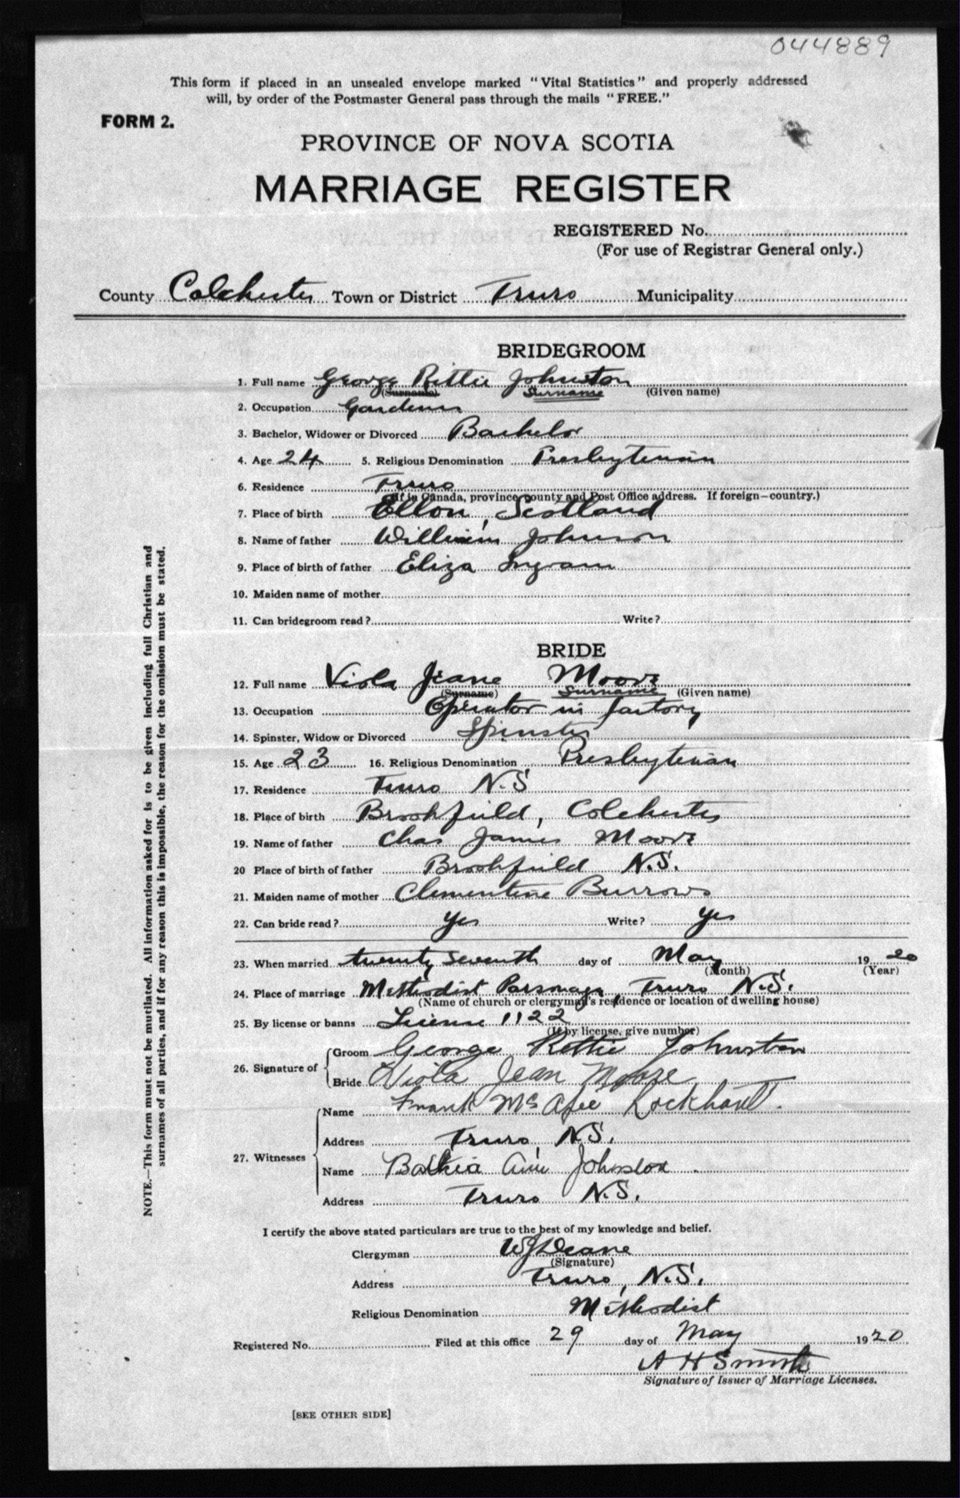 044889
This form if placed in an unsealed envelope marked "Vital Statistics" and properly addressed
will, by order of the Postmaster General pass through the mails "FREE."
FORM 2.
PROVINCE OF NOVA SCOTIA
MARRIAGE REGISTER
REGISTERED No.
(For use of Registrar General only.)
County Colchester Town or District Truro Municipality
BRIDEGROOM
1. Full name George Rettie Johnston
(Surname) Surname (Given name)
2. Occupation Gardener
3. Bachelor, Widower or Divorced Bachelor
4. Age 24 5. Religious Denomination Presbyterian
6. Residence Truro
(If in Canada, province county and Post Office address. If foreign—country.)
7. Place of birth Ellon, Scotland
8. Name of father William Johnson
9. Place of birth of father Eliza Ingram
10. Maiden name of mother
11. Can bridegroom read? Write?
BRIDE
12. Full name Viola Jeane Moore
(Surname) Surname (Given name)
13. Occupation Operator in factory
14. Spinster, Widow or Divorced Spinster
15. Age 23 16. Religious Denomination Presbyterian
17. Residence Truro N.S
18. Place of birth Brookfield, Colchester
19. Name of father Chas James Moore
20 Place of birth of father Brookfield N.S.
21. Maiden name of mother Clementine Burrows
22. Can bride read? yes Write? yes
23. When married twenty seventh day of May 1920
(Month) (Year)
24. Place of marriage Methodist Parsonage, Truro N.S.
(Name of church or clergyman's residence or location of dwelling house)
25. By license or banns License 1122
(If by license, give number)
26. Signature of
Groom George Rettie Johnston
Bride Viola Jean Moore
27. Witnesses
Name Frank McAfee Lockhart.
Address Truro N.S.
Name Bathia Ann Johnston
Address Truro N.S.
I certify the above stated particulars are true to the best of my knowledge and belief.
Clergyman WJDeane
(Signature)
Address Truro, N.S.
Religious Denomination Methodist
Registered No. Filed at this office 29 day of May 1920
A H Smith
Signature of Issuer of Marriage Licenses.
[SEE OTHER SIDE]
NOTE.—This form must not be mutilated. All information asked for is to be given including full Christian and
surnames of all parties, and if for any reason this is impossible, the reason for the omission must be stated.